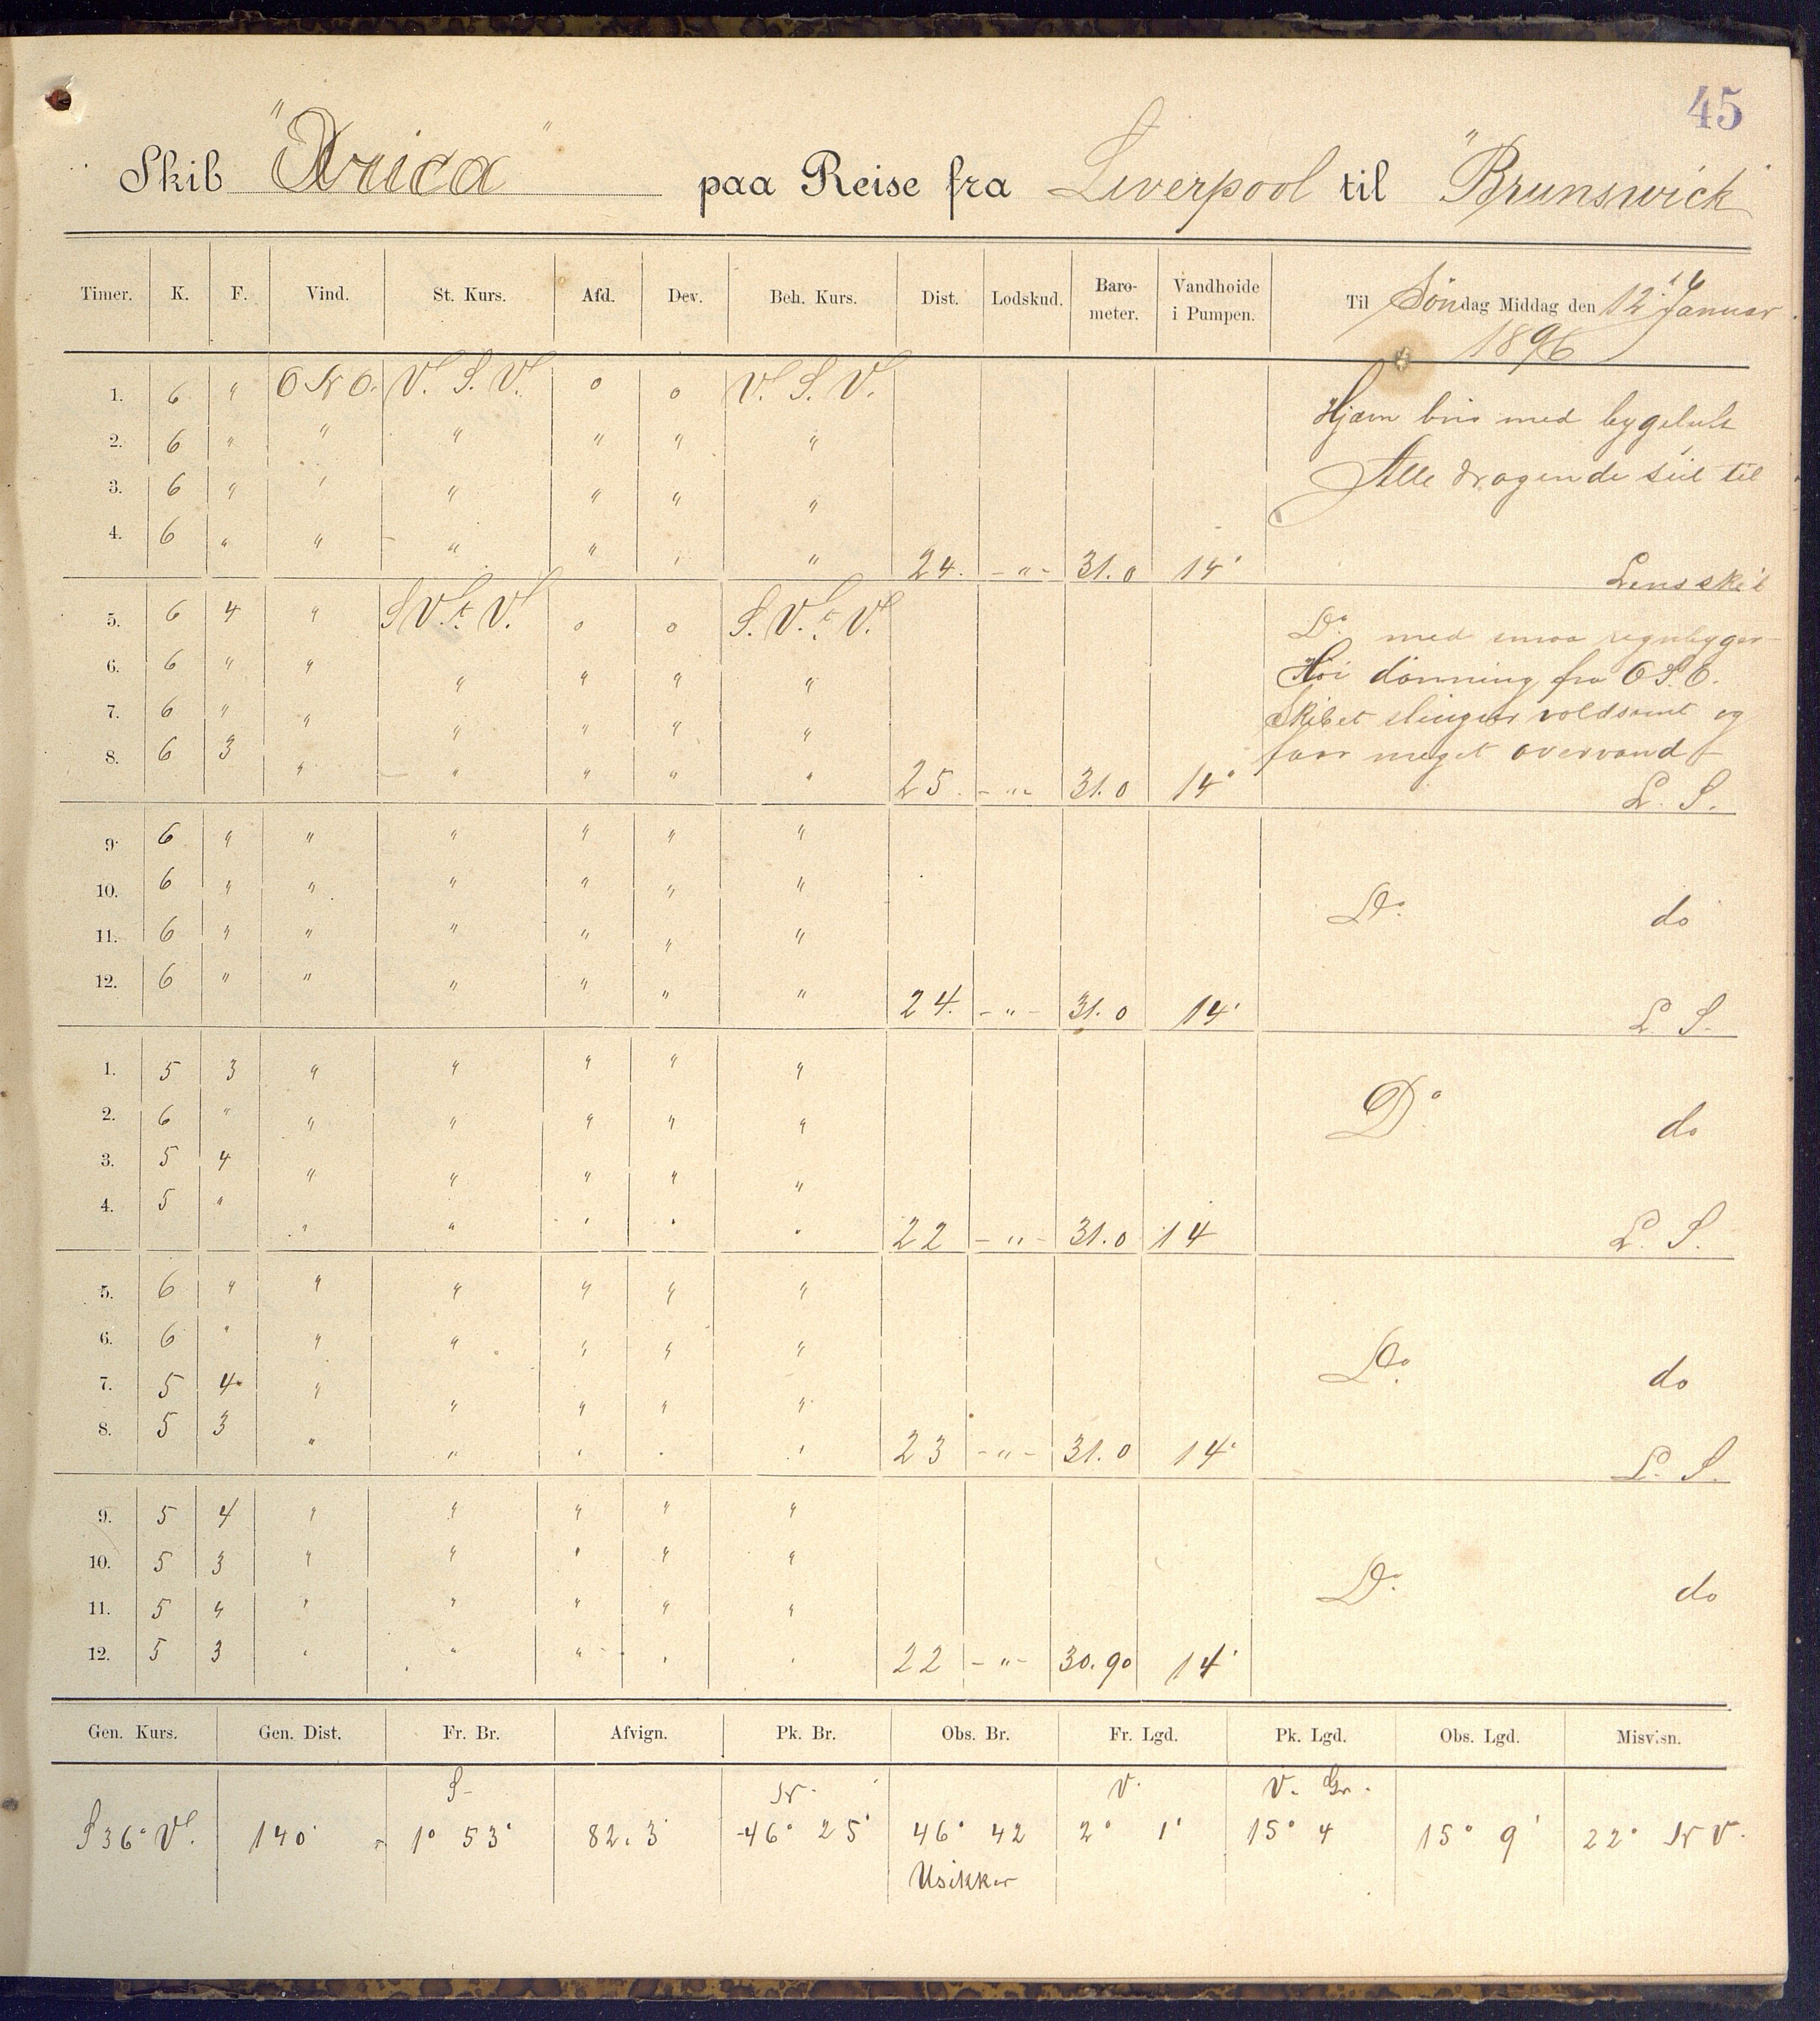 45
Skib "Arica" paa Reise fra Liverpool til "Brunswick"
Timer. K. F. Vind. St. Kurs. Afd. Dev. Beh. Kurs. Dist. Lodskud. Barometer. Vandhoide i Pumpen. Til Søndag Middag den 12' Januar
1896
1. 6 " O N O. V. S. V. 0 0 V. S. V. Hjævn bris med bygeluft
2. 6 " " " " " "
3. 6 " " " " " " Alle dragende seil til
4. 6 " " " " " " 24. - " - 31.0 14' Lensskib
5. 6 4 " S V. t. V. 0 0 S. V. t. V. Do. med smaa regnbyger
6. 6 " " " " " " Høi dønning fra O S. O.
7. 6 " " " " " " Skibet slinger voldsomt og
8. 6 3 " " " " " 25. - " - 31.0 14" faar meget overvand
L. S.
9. 6 " " " " " "
10. 6 " " " " " " Do. do
11. 6 " " " " " "
12. 6 " " " " " " 24. - " - 31.0 14' L. S.
1. 5 3 " " " " "
2. 6 " " " " " " Do do
3. 5 4 " " " " "
4. 5 " " " " " " 22 - " - 31.0 14 L. S.
5. 6 " " " " " "
6. 6 " " " " " " Do. do
7. 5 4 " " " " "
8. 5 3 " " " " " 23 - " - 31.0 14' L. S.
9. 5 4 " " " " "
10. 5 3 " " " " " Do. do
11. 5 4 " " " " "
12. 5 3 " " " " " 22 - " - 30.90 14'
Gen. Kurs. Gen. Dist. Fr. Br. Afvign. Pk. Br. Obs. Br. Fr. Lgd. Pk. Lgd. Obs. Lgd. Misvisn.
S- N. V. V. Gr.
S 36° V. 140' 1° 53' 82.3 46° 25' 46° 42 2° 1' 15° 4 15° 9' 22° N V.
Usikker